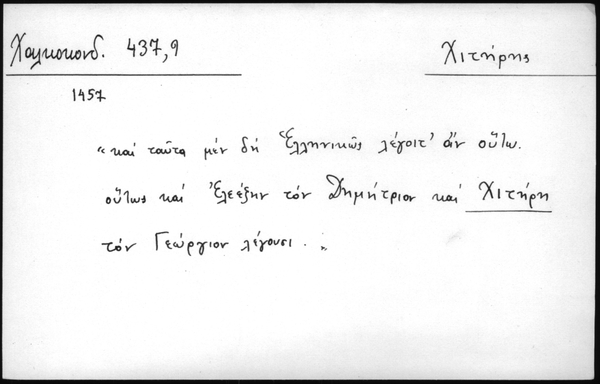 Χαλκοκονδ. 437,9
Χιτήρης
1457
"καὶ ταῦτα μὲν δὴ Ἑλληνικῶς λέγοιτ' ἂν οὕτω.
οὕτως καὶ Ἐλεέξην τὸν Δημήτριον καὶ Χιτήρη
τὸν Γεώργιον λέγουσι. "